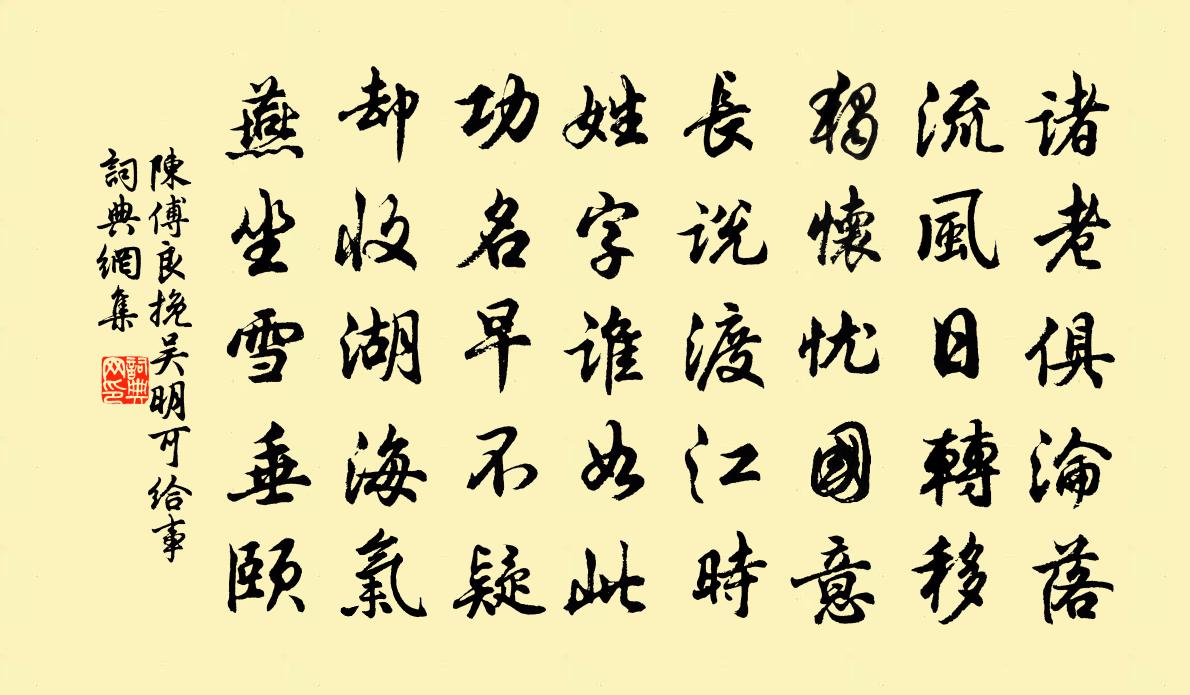 諸老俱淪落
流風日轉移
獨懷憂國意
長說渡江時
姓字誰如此
功名早不疑
却收湖海氣
燕坐雪垂頤
陳傅良挽吴明可給事
詞典網集
詞典网印